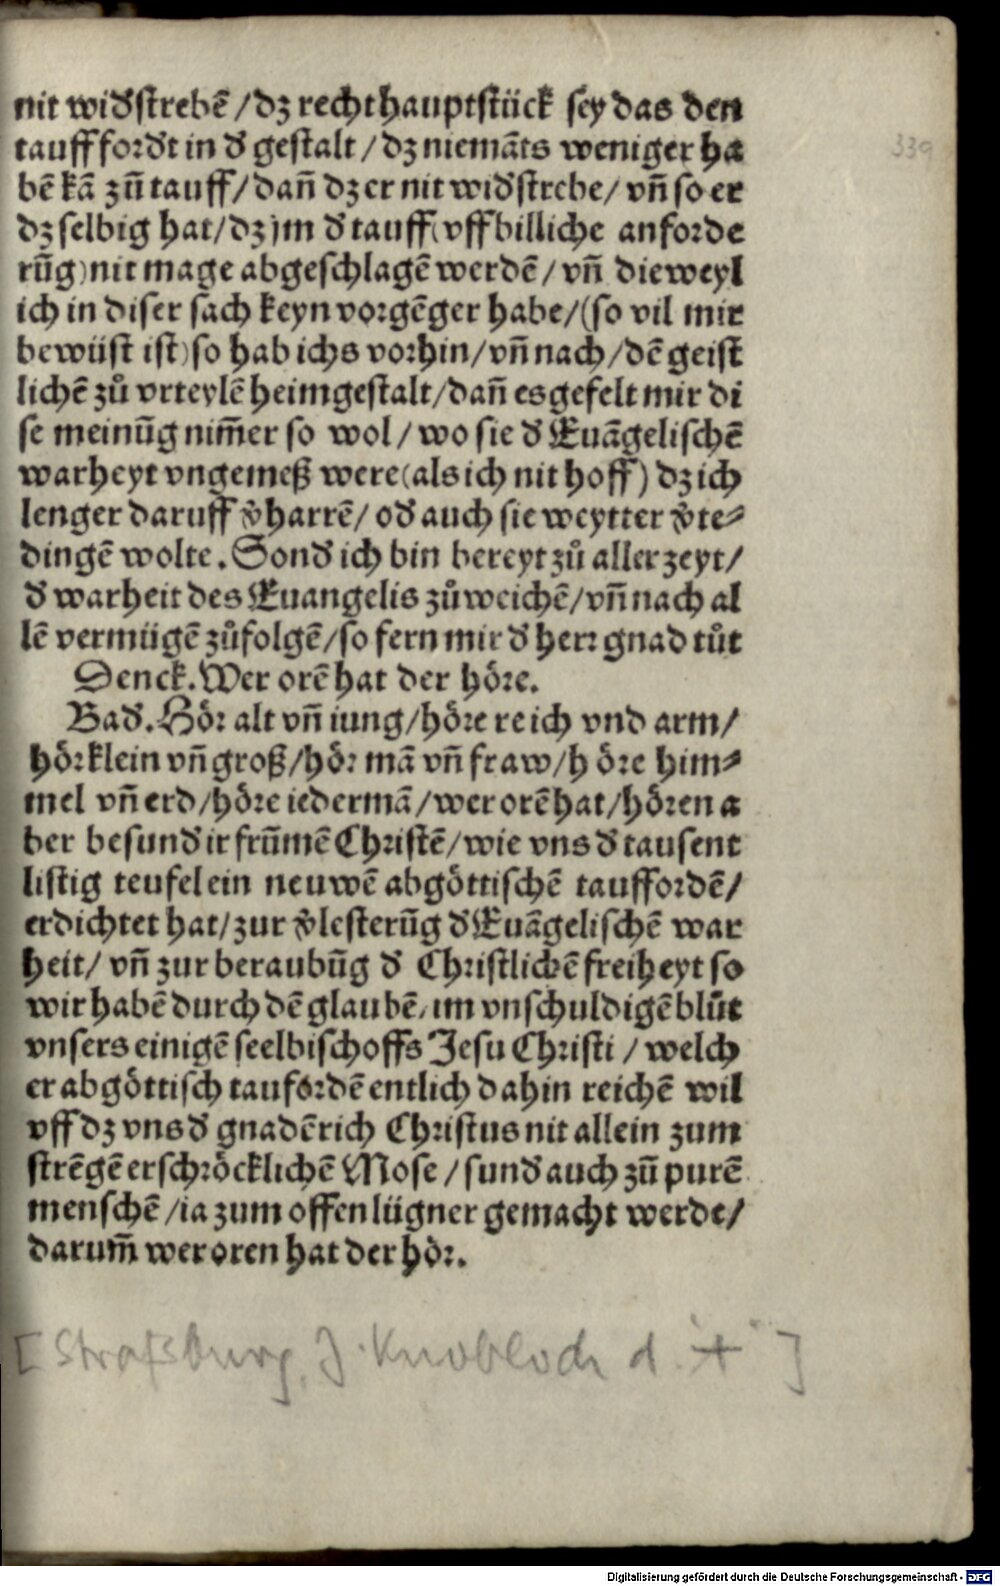 nit widʼstrebē / dz recht hauptstück sey das den
tauff fordʼt in dʼ gestalt / dz niemāts weniger ha
bē kā zū tauff / dañ dz er nit widʼstrebe / vñ so er
dz selbig hat / dz jm dʼ tauff (vff billiche anforde
rūg) nit mage abgeschlagē werdē / vñ die weyl
ich in diser sach keyn vorgēger habe / (so vil mir
bewüst ist) so hab ichs vorhin / vñ nach / dē geist
lichē zů vrteylē heimgestalt / dañ es gefelt mir di
se meinūg nim̄er so wol / wo sie dʼ Euāgelischē
warheyt vngemeß were (als ich nit hoff) dz ich
lenger daruff v̄harrē / odʼ auch sie weytter v̄te⸗
dingē wolte. Sondʼ ich bin bereyt zů aller zeyt /
dʼ warheit des Euangelis zů weichē / vñ nach al
lē vermügē zů folgē / so fern mir dʼ herr gnad tůt
Denck. Wer orē hat der höre.
Badʼ. Hör alt vñ iung / höre reich vnd arm /
hör klein vñ groß / hör mā vñ fraw / höre him⸗
mel vñ erd / höre iedermā / wer orē hat / hören a
ber besundʼ ir frūmē Christē / wie vns dʼ tausent
listig teufel ein neuwē abgöttischē taufforden /
erdichtet hat / zur v̄lesterūg dʼ Euāgelischē war
heit / vñ zur beraubūg dʼ Christlichē freiheyt so
wir habē durch dē glaubē / im vnschuldigē blůt
vnsers einigē seelbischoffs Jesu Christi / welch
er abgöttisch taufordē entlich dahin reichē wil
vff dz vns dʼ gnadērich Christus nit allein zum
strēgē erschröcklichē Mose / sundʼ auch zū purē
menschē / ia zum offen lügner gemacht werde /
darum̄ wer oren hat der hör.
[Straßburg, J. Knobloch d. Ä.]
339
Digitalisierung gefördert durch die Deutsche Forschungsgemeinschaft - DFG